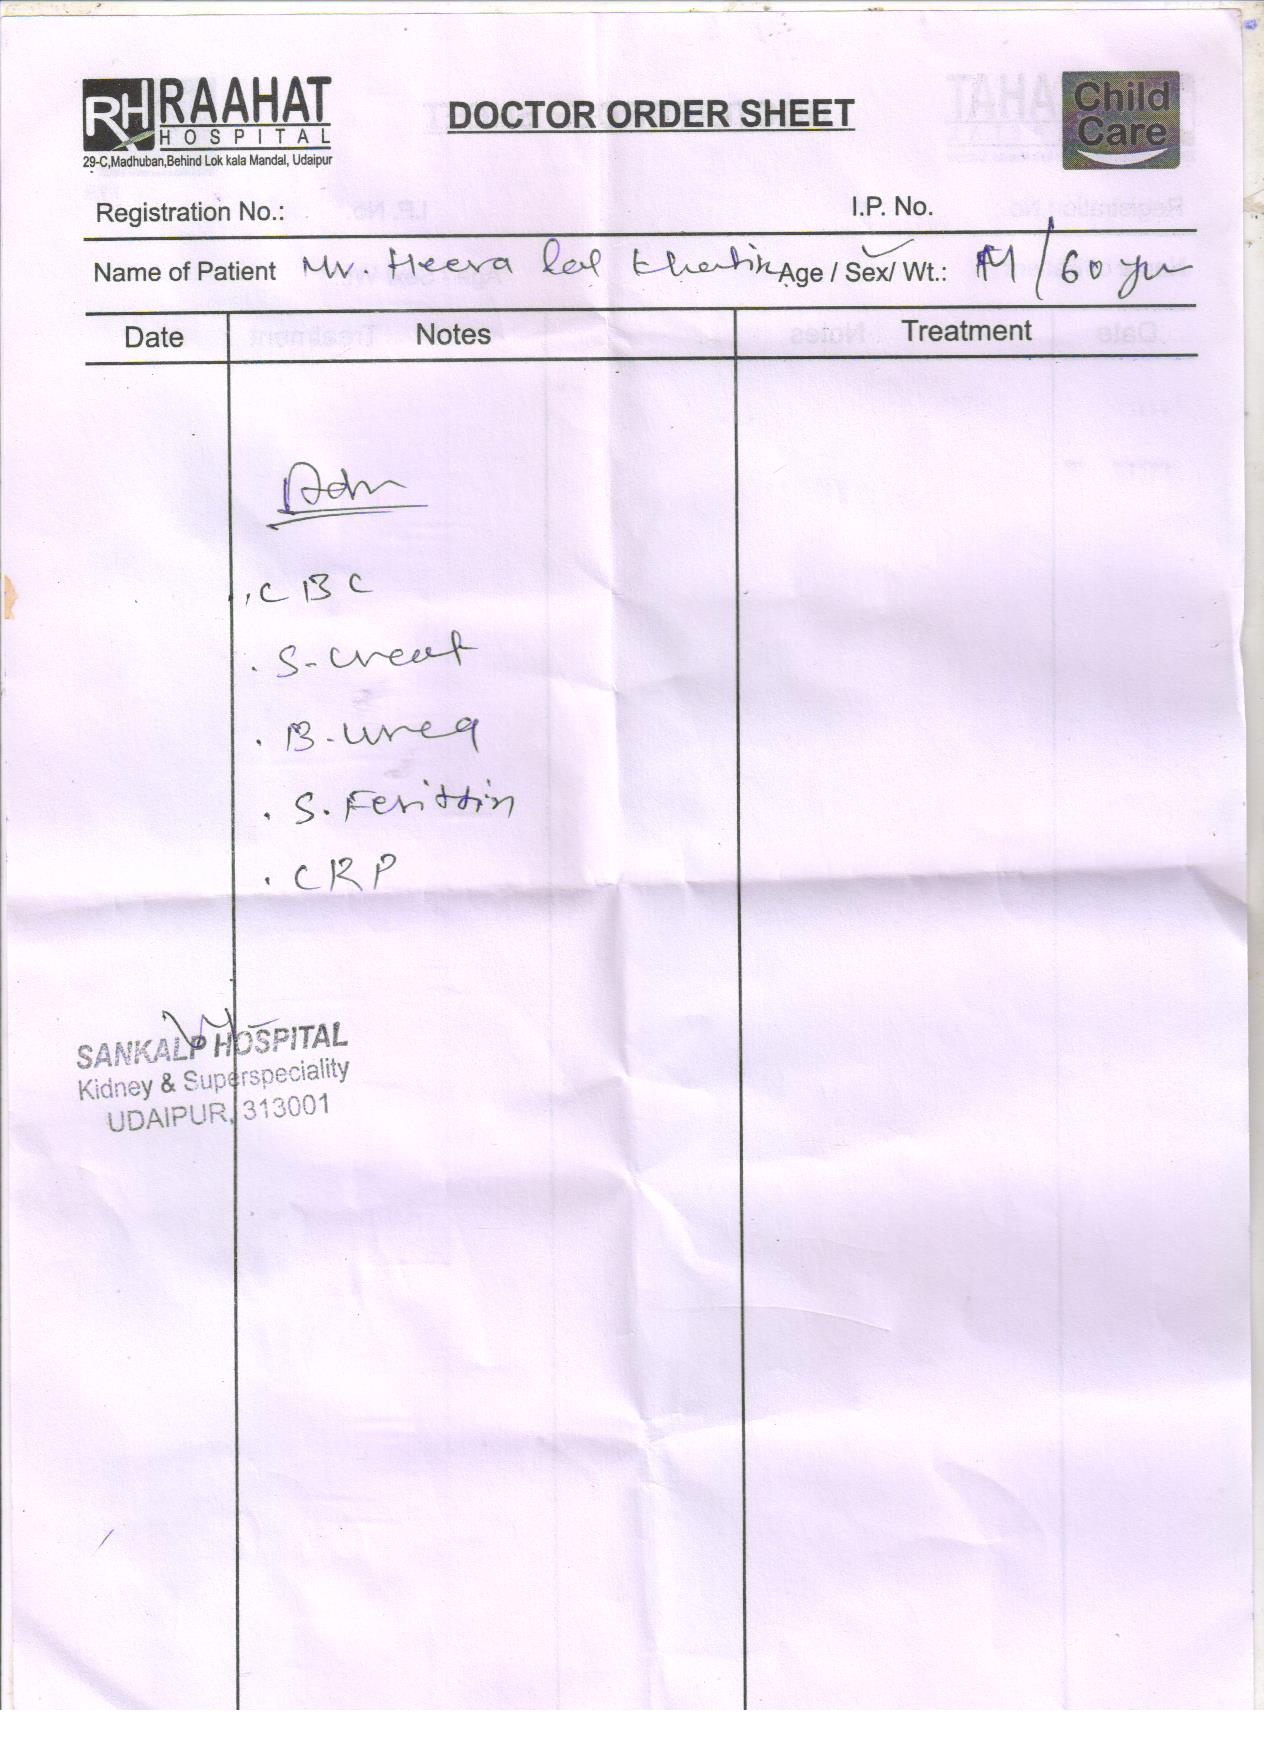 RH RAAHAT
HOSPITAL
29-C,Madhuban,Behind Lok kala Mandal, Udaipur
DOCTOR ORDER SHEET
Child
Care
Registration No.:
I.P. No.
Name of Patient Mr. Heera Lal Khatik Age / Sex/ Wt.: M/60 yr
Date Notes Treatment
Adm
. CBC
. S-creat
. B-urea
. S. Ferittin
. CRP
SANKALP HOSPITAL
Kidney & Superspeciality
UDAIPUR, 313001